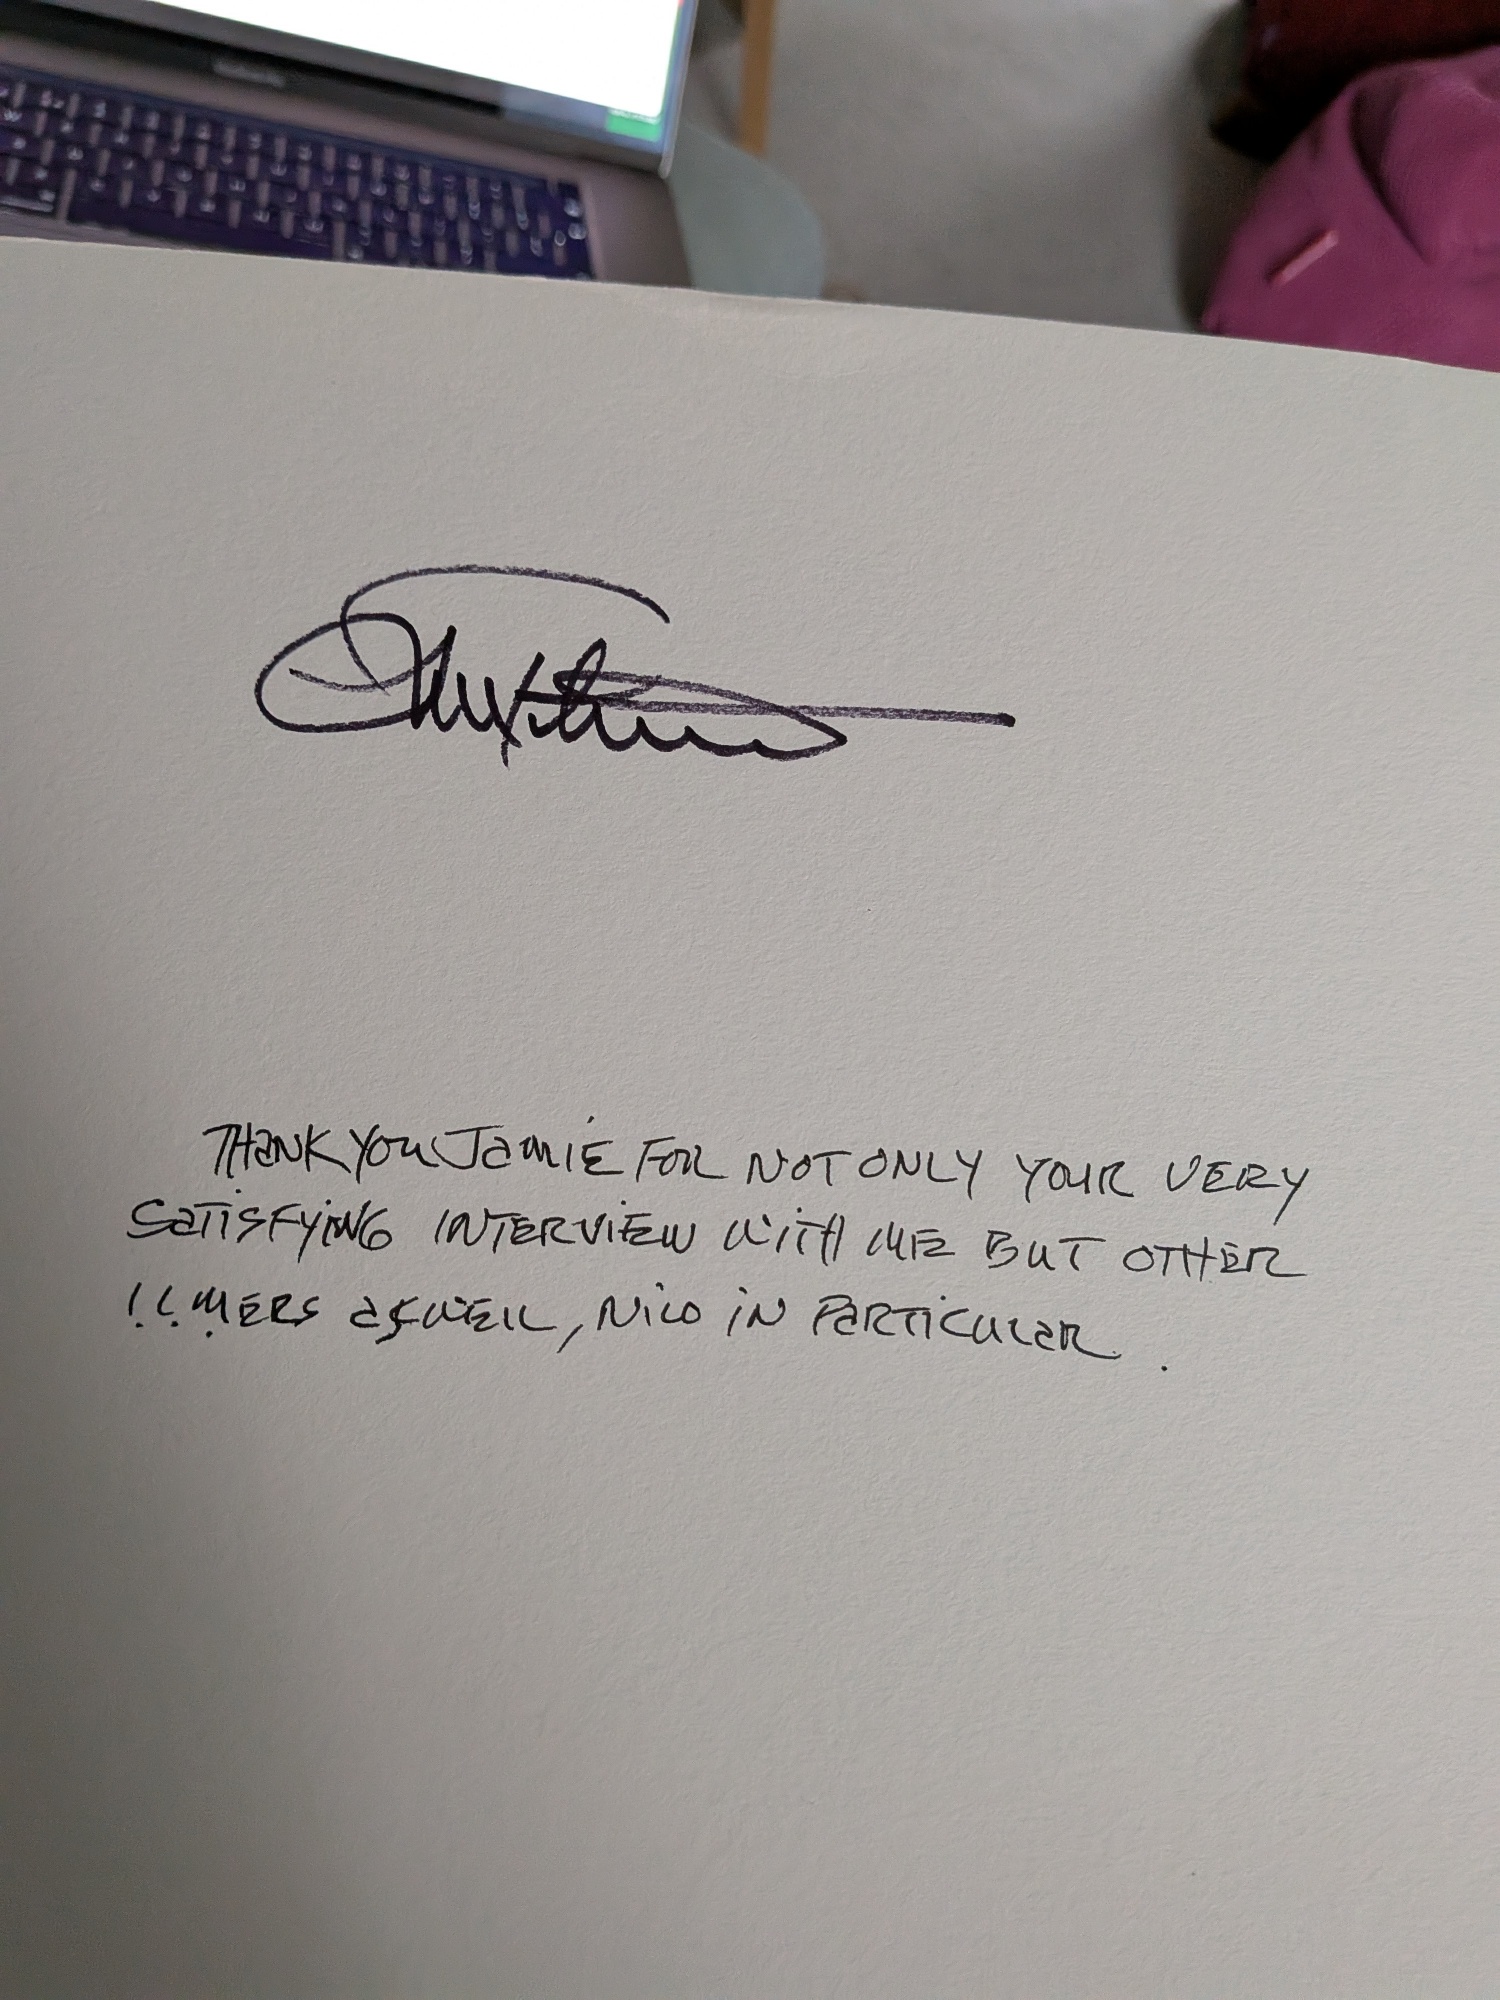 THANK YOU JAMIE FOR NOT ONLY YOUR VERY
SATISFYING INTERVIEW WITH ME BUT OTHER
ASWELL, NICO IN PARTICULAR.